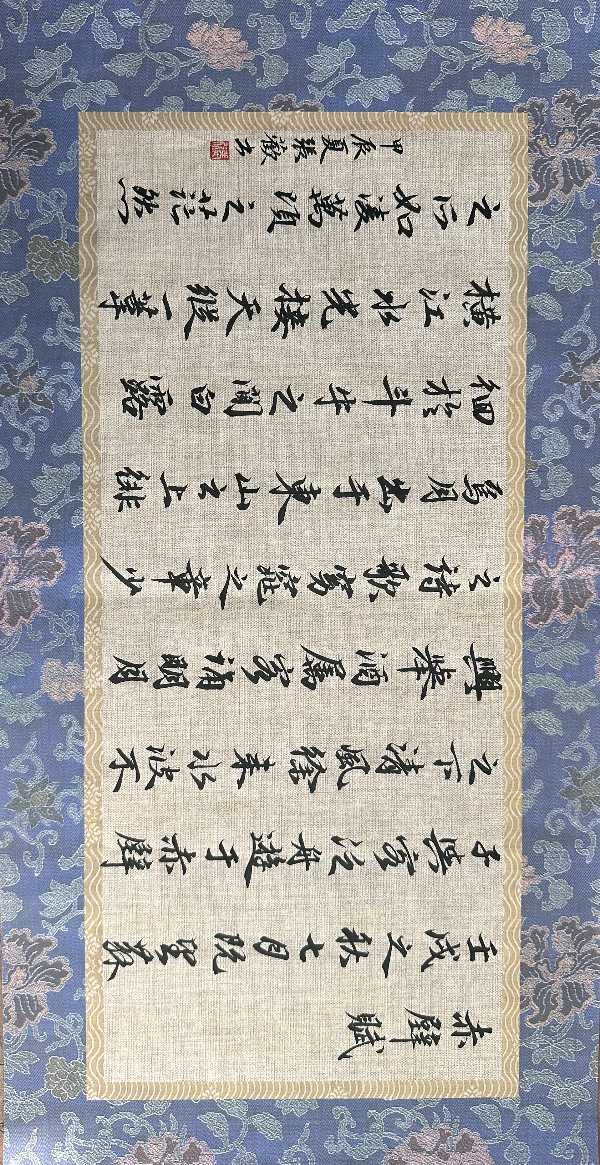 赤壁賦
壬戌之秋七月既望蘇
子與客泛舟遊于赤壁
之下清風徐來水波不
興舉酒屬客誦明月
之詩歌窈窕之章少
焉月出于東山之上徘
徊於斗牛之間白露
橫江水光接天縱一葦
之所如凌萬頃之茫然
甲辰夏張歡书